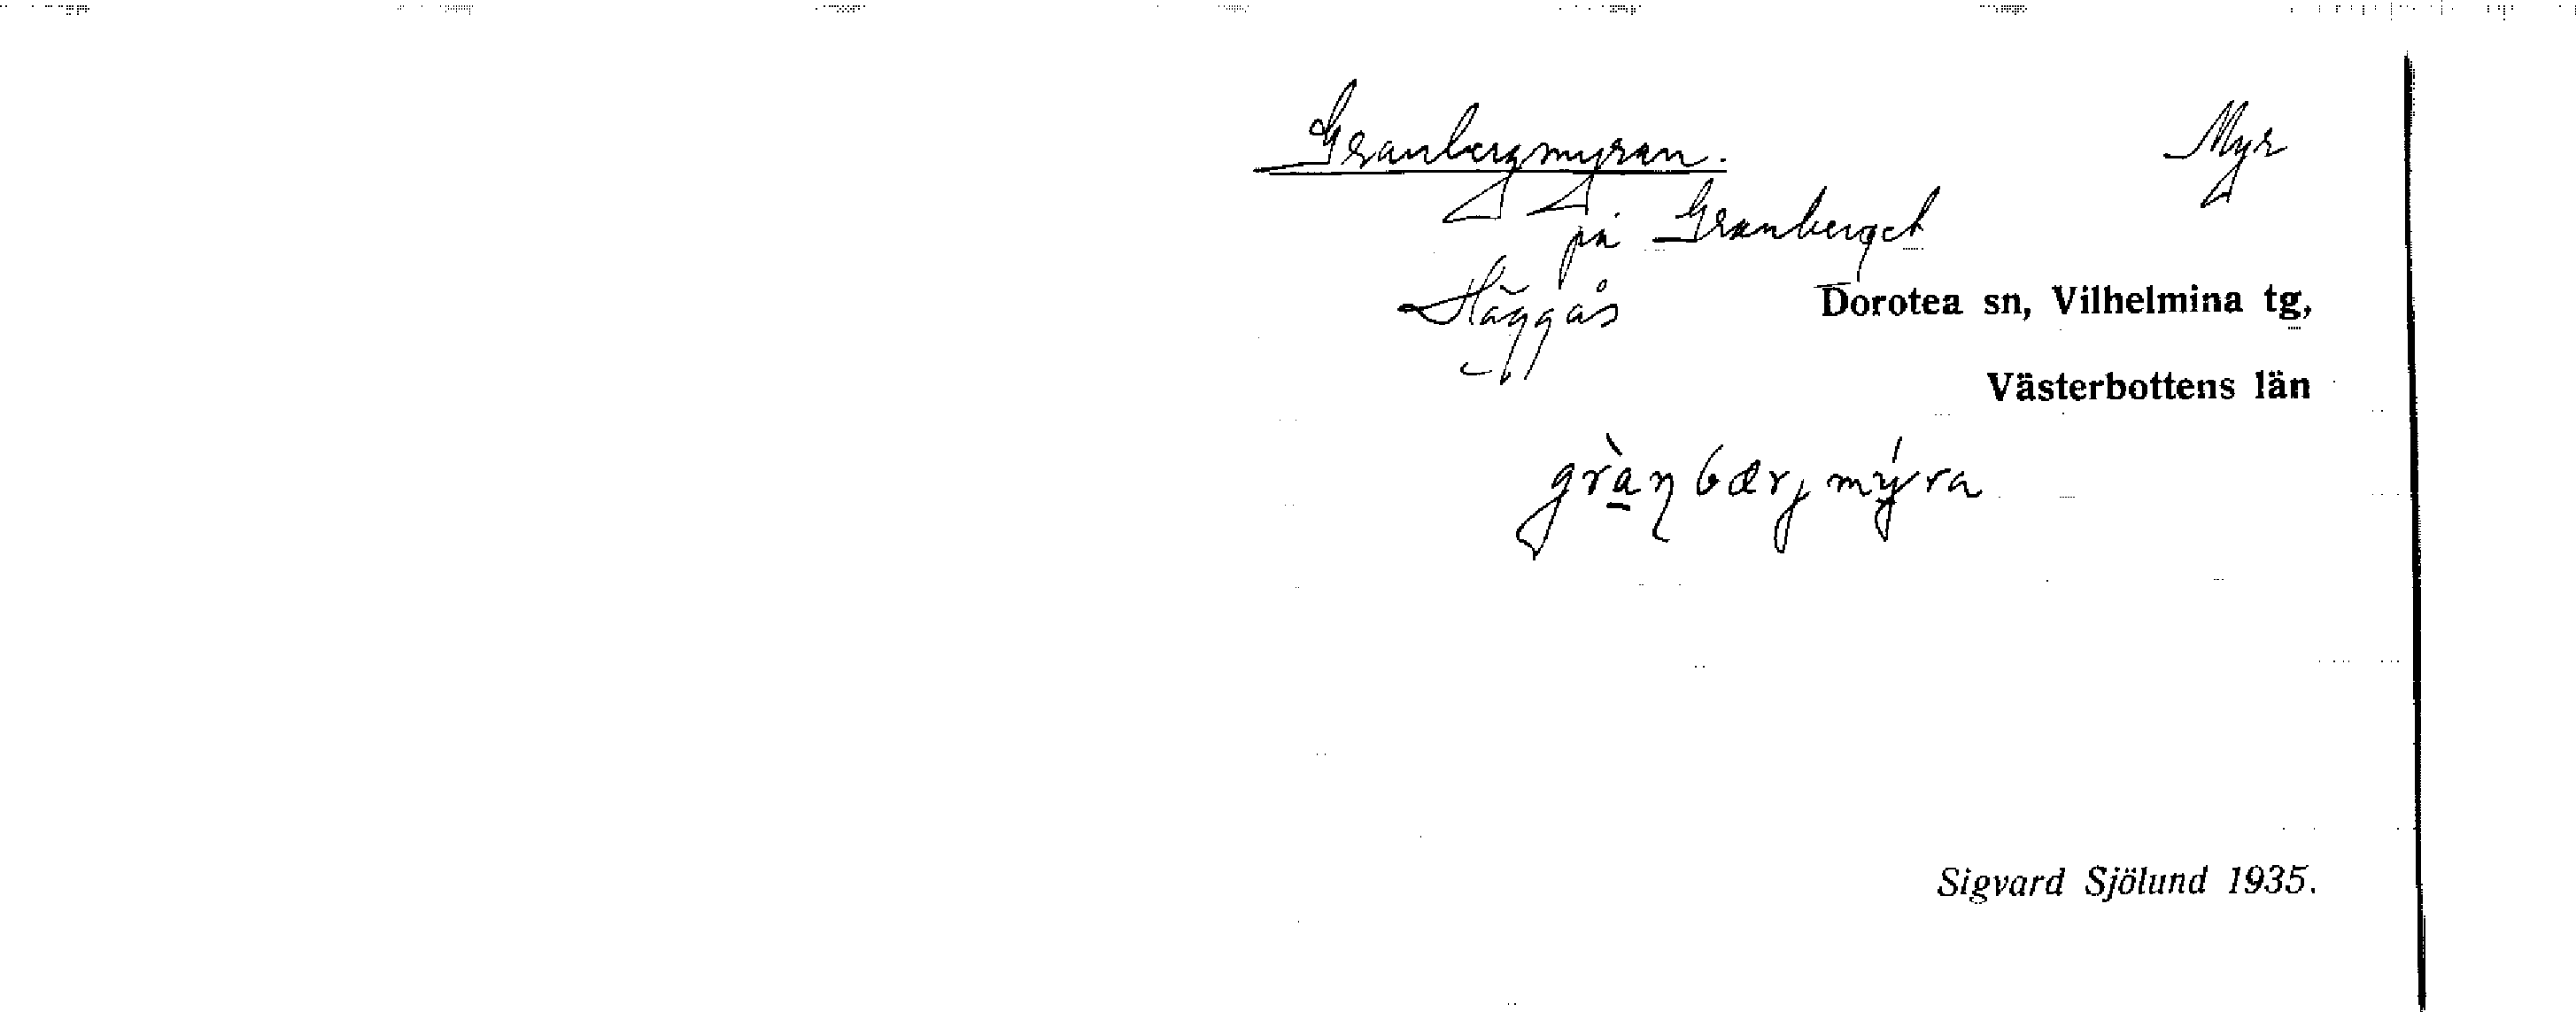 Granbergmyran. Myr
på Granberget
Häggås Dorotea sn, Vilhelmina tg,
Västerbottens län
grànbærjmýra
Sigvard Sjölund 1935.